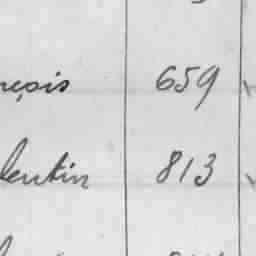 nçois 659
lentin 813